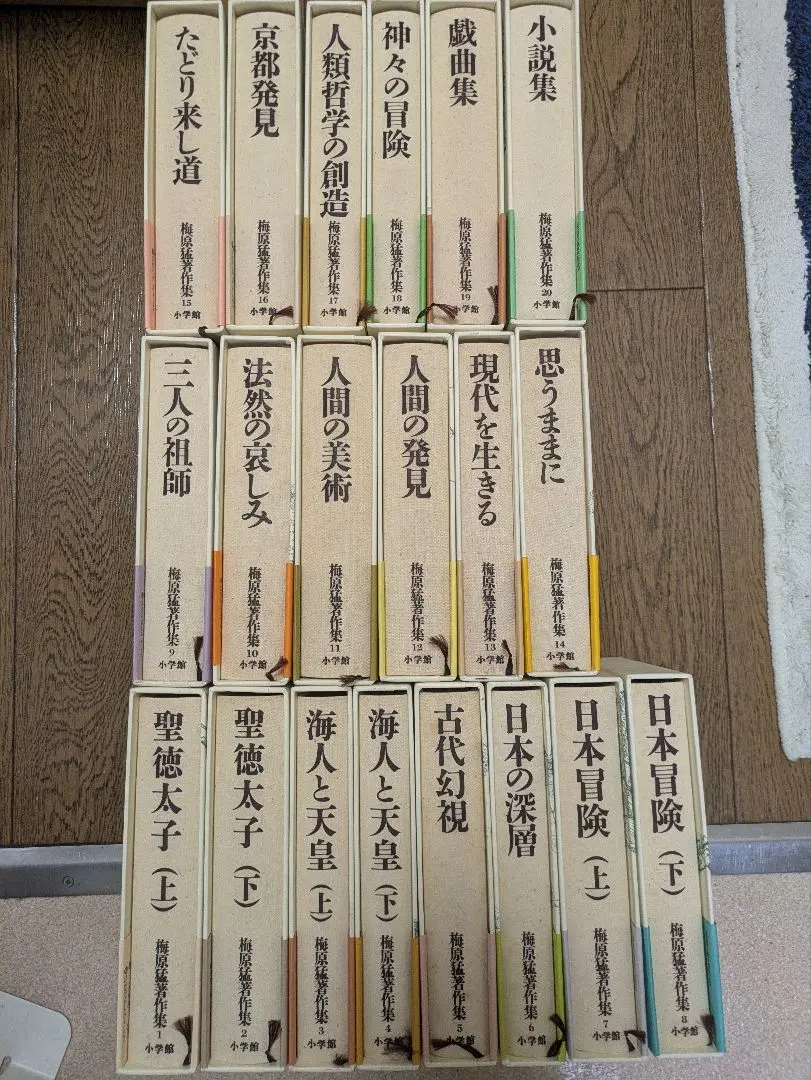 たどり来し道
梅原猛著作集 15
小学館
京都発見
梅原猛著作集 16
小学館
人類哲学の創造
梅原猛著作集 17
小学館
神々の冒険
梅原猛著作集 18
小学館
戯曲集
梅原猛著作集 19
小学館
小説集
梅原猛著作集 20
小学館
三人の祖師
梅原猛著作集 9
小学館
法然の哀しみ
梅原猛著作集 10
小学館
人間の美術
梅原猛著作集 11
小学館
人間の発見
梅原猛著作集 12
小学館
現代を生きる
梅原猛著作集 13
小学館
思うままに
梅原猛著作集 14
小学館
聖徳太子(上)
梅原猛著作集 1
小学館
聖徳太子(下)
梅原猛著作集 2
小学館
海人と天皇(上)
梅原猛著作集 3
小学館
海人と天皇(下)
梅原猛著作集 4
小学館
古代幻視
梅原猛著作集 5
小学館
日本の深層
梅原猛著作集 6
小学館
日本冒険(上)
梅原猛著作集 7
小学館
日本冒険(下)
梅原猛著作集 8
小学館